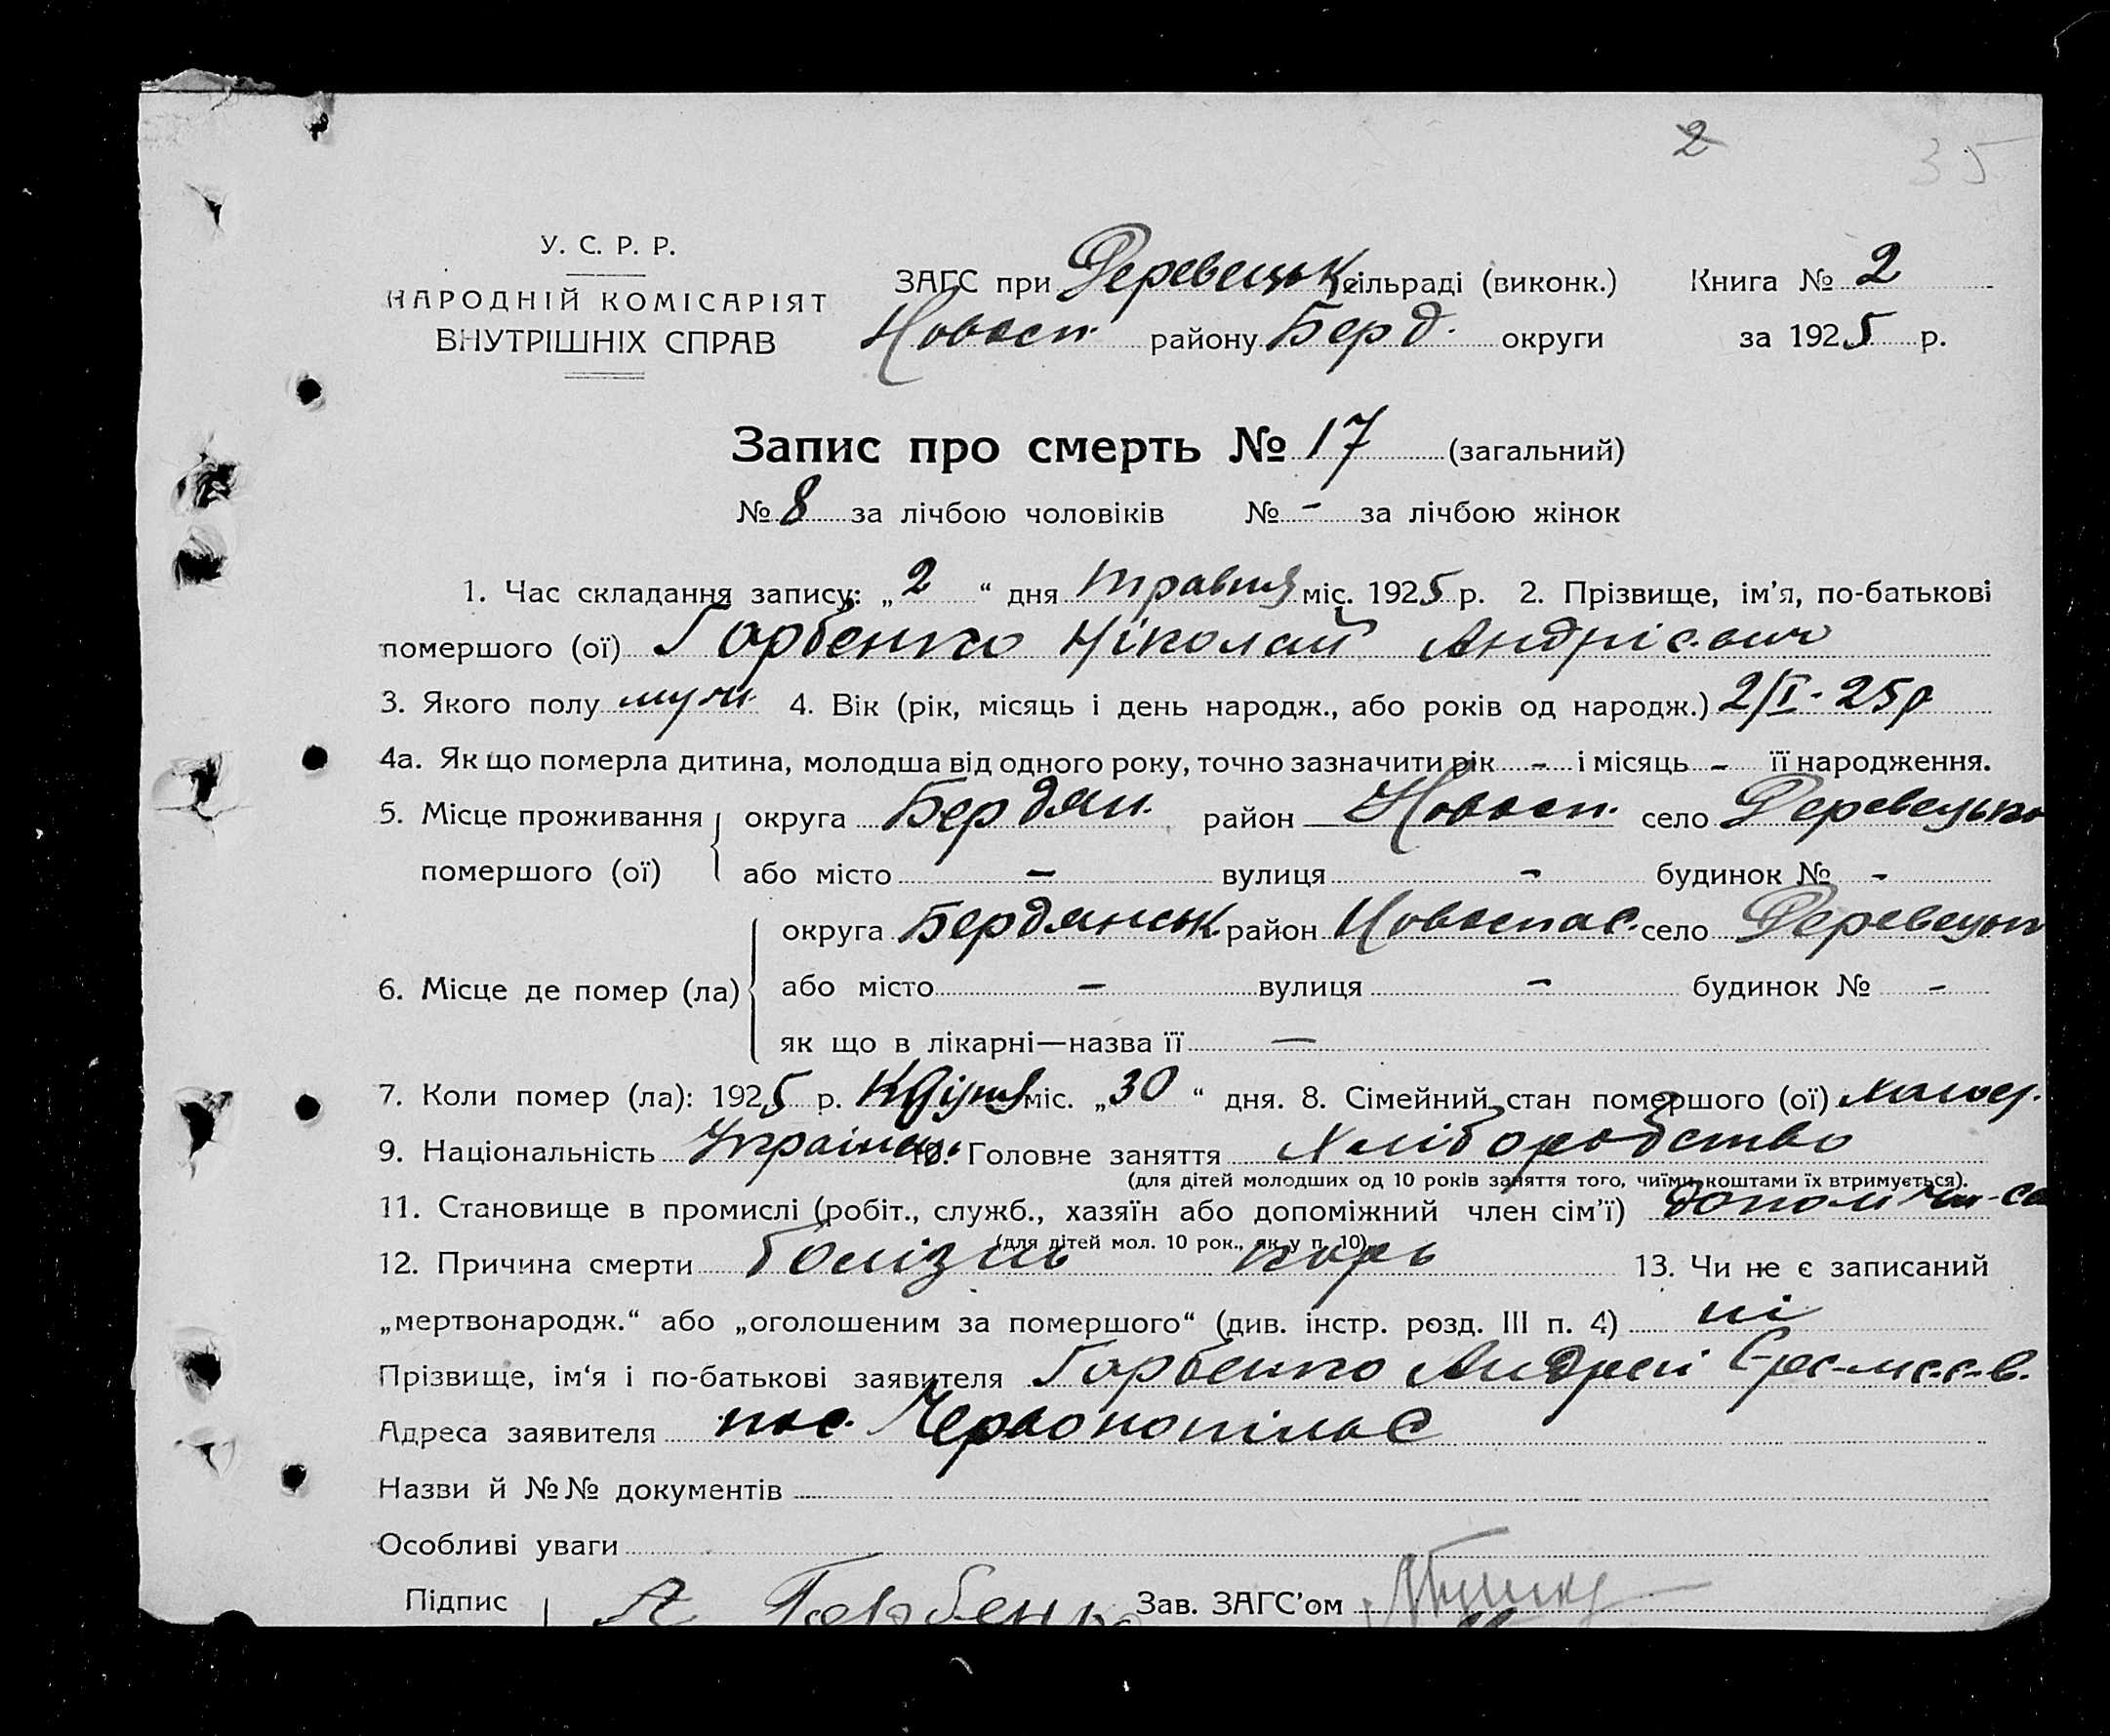 2
35
У. С. Р. Р.
НАРОДНІЙ КОМІСАРІЯТ
ВНУТРІШНІХ СПРАВ
ЗАГС при Деревецьк сільраді (виконк.) Книга № 2
Новосп. району Берд. округи за 1925 р.
Запис про смерть № 17 (загальний)
№ 8 за лічбою чоловіків № - за лічбою жінок
1. Час складання запису: „2“ дня травня міс. 1925 р. 2. Прізвище, ім’я, по-батькові
помершого (ої) Гарбенко Ніколай Андрієвич
3. Якого полу муж. 4. Вік (рік, місяць і день народж., або років од народж.) 2/I-25р
4а. Як що померла дитина, молодша від одного року, точно зазначити рік - і місяць - її народження.
5. Місце проживання округа Бердян. район Новосп. село Деревецько
помершого (ої) або місто - вулиця - будинок № -
округа Бердянськ. район Новоспас. село Деревецьк
6. Місце де помер (ла) або місто - вулиця - будинок № -
як що в лікарні—назва її —
7. Коли помер (ла): 1925 р. Квітня міс. „30“ дня. 8. Сімейний стан помершого (ої)
9. Національність Українець 10. Головне заняття Хліборобство
(для дітей молодших од 10 років заняття того, чиїми коштами їх втримується).
11. Становище в промислі (робіт., служб., хазяїн або допоміжний член сім’ї)
(для дітей мол. 10 рок., як у п. 10)
12. Причина смерти болізнь корь 13. Чи не є записаний
„мертвонародж.“ або „оголошеним за помершого“ (див. інстр. розд. III п. 4) ні
Прізвище, ім‘я і по-батькові заявителя Гарбенко Андрей
Адреса заявителя пос. Червонопілье
Назви й №№ документів
Особливі уваги
Підпис А Гарбенко Зав. ЗАГС’ом